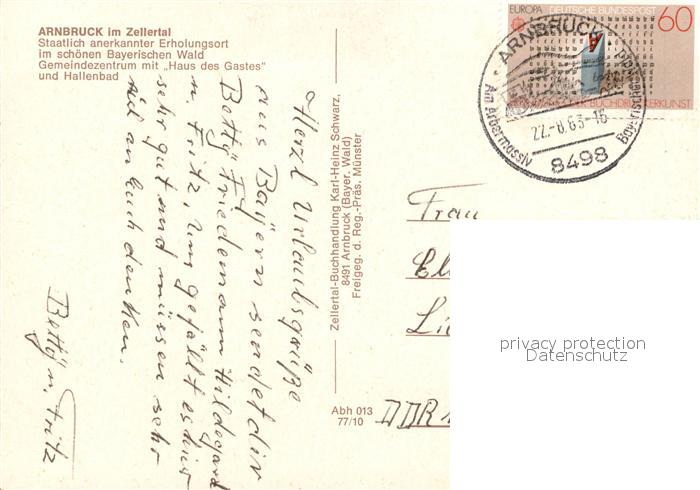 ARNBRUCK im Zellertal
Staatlich anerkannter Erholungsort
im schönen Bayerischen Wald
Gemeindezentrum mit „Haus des Gastes"
und Hallenbad
Herzl. Urlaubsgrüße
aus Bayern sendet dir
Betty Friedemann Hildegard
u. Fritz, Uns gefällt es hier
sehr gut und müssen sehr
viel an Euch denken.
Betty u. Fritz
Zellertal-Buchhandlung Karl-Heinz Schwarz,
8491 Arnbruck (Bayer. Wald)
Freigeg. d. Reg.-Präs. Münster
Abh 013
77/10
EUROPA DEUTSCHE BUNDESPOST 60
BUCHDRUCKERKUNST
ARNBRUCK
Am Arbermassiv
22.-8.83-16
8498
Frau
DDR
privacy protection
Datenschutz